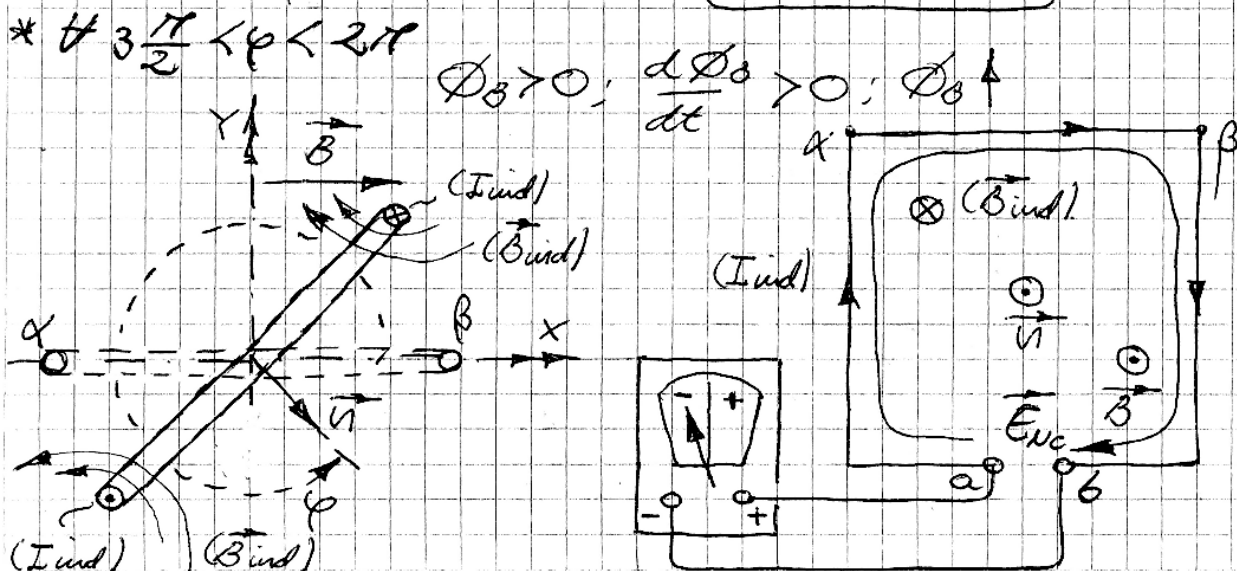 * ∀ 3π/2 < φ < 2π
Φ_B > 0; dΦ_B/dt > 0; Φ_B ↑
Y
B⃗
(Iind)
(B⃗ind)
α
β
X
S⃗
φ
(Iind)
(B⃗ind)
α
β
⊗ (B⃗ind)
(Iind)
S⃗
B⃗
E⃗NC
a
b
- +
- +